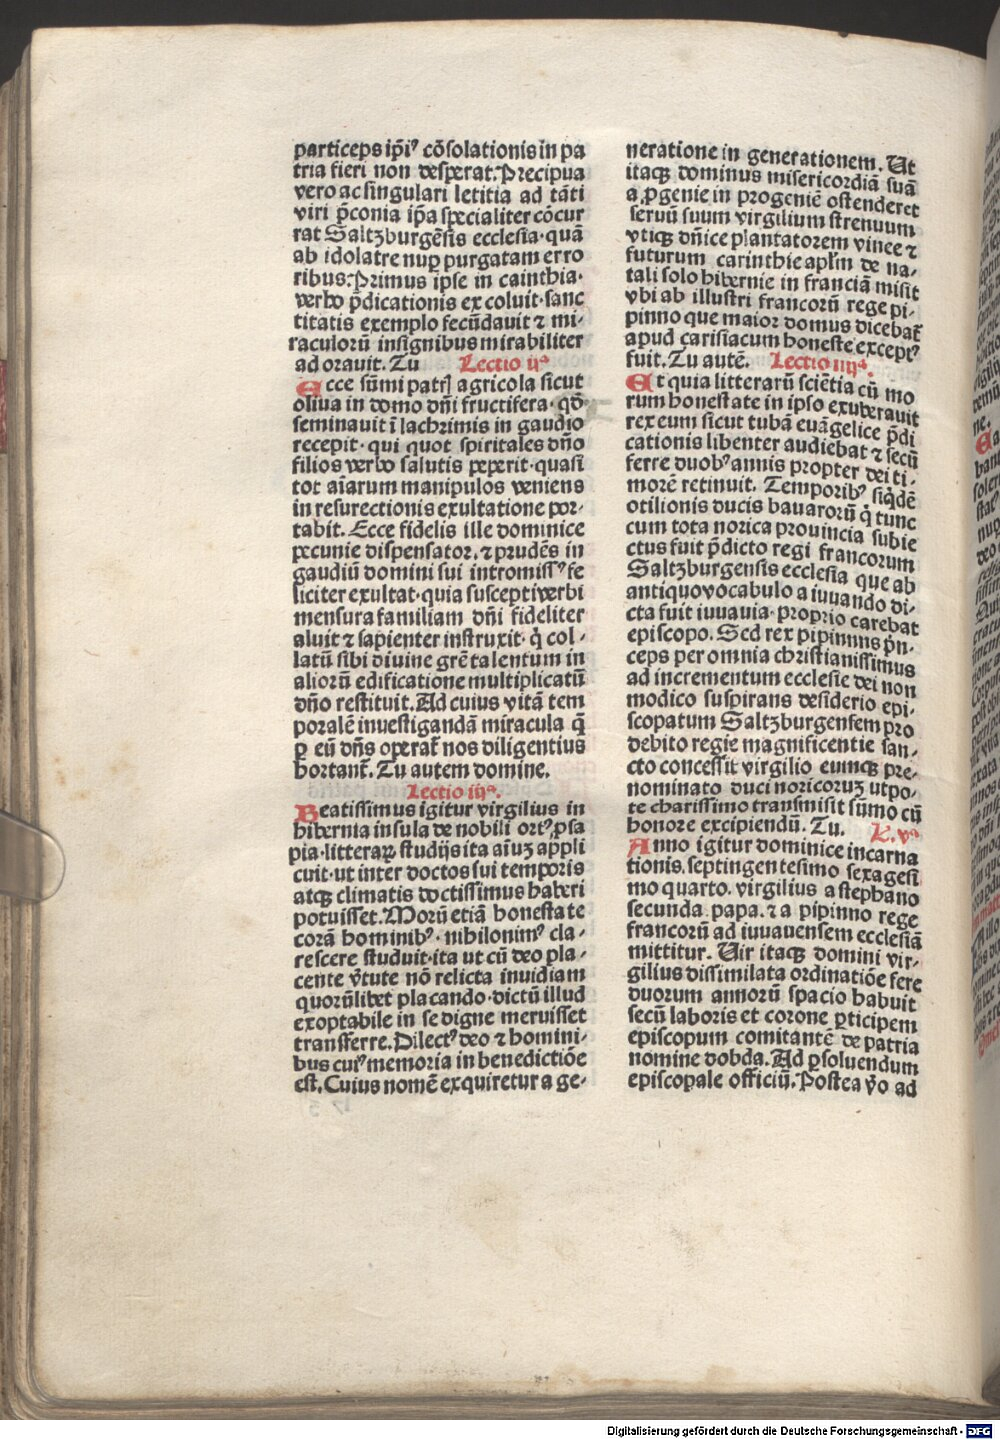 particeps ip̄iꝰ cōsolationis in pa
tria fieri non desperat. Precipua
vero ac singulari letitia ad tāti
viri p̄conia ip̄a specialiter cōcur
rat Saltzburgēsis ecclesia· quā
ab idolatre nuꝑ purgatam erro
ribus. Primus ipse in cainthia·
verbo p̄dicationis excoluit· sanc
titatis exemplo fecūdauit ⁊ mi-
raculorū insignibus mirabiliter
ad orauit. Tu Lectio ijª
Ecce sūmi patrꝭ agricola sicut
oliua in domo dn̄i fructifera· qd̄
seminauit ī lachrimis in gaudio
recepit· qui quot spiritales dn̄o
filios verbo salutis peperit· quasi
tot aīarum manipulos veniens
in resurectionis exultatione por-
tabit. Ecce fidelis ille dominice
pecunie dispensator. ⁊ prudēs in
gaudiū domini sui intromissꝰ fe
liciter exultat· quia suscepti verbi
mensura familiam dn̄i fideliter
aluit ⁊ sapienter instruxit· q̄ col-
latū sibi diuine grē talentum in
aliorū edificatione multiplicatū
dn̄o restituit. Ad cuius vitā tem
poralē inuestigandā miracula q̄
ꝑ eū dn̄s operat᷑ nos diligentius
hortant᷑. Tu autem domine.
Lectio iijª.
Beatissimus igitur virgilius in
hibernia insula de nobili ortꝰ ꝓsa
pia· litteraꝝ studijs ita aīuꝫ appli
cuit· ut inter doctos sui temporis
atqꝫ climatis doctissimus haberi
potuisset. Morū etiā honestate
corā hominibꝰ· nihilonimꝰ cla-
rescere studuit· ita ut cū deo pla-
cente v̄tute nō relicta inuidiam
quorūlibet placando· dictū illud
exoptabile in se digne meruisset
transferre. Dilectꝰ deo ⁊ homini-
bus cuiꝰ memoria in benedictiōe
est. Cuius nomē exquiretur a ge-
neratione in generationem. Ut
itaqꝫ dominus misericordiā suā
a ꝓgenie in progeniē ostenderet
seruū suum virgilium strenuum
vtiqꝫ dn̄ice plantatorem vinee ⁊
futurum carinthie apl̄m de na-
tali solo hibernie in franciā misit
vbi ab illustri francorū rege pi-
pinno que maior domus dicebat᷑
apud carisiacum honeste exceptꝰ
fuit. Tu autē. Lectio iiijª.
Et quia litterarū sciētia cū mo
rum honestate in ipso exuberauit
rex eum sicut tubā euāgelice p̄di
cationis libenter audiebat ⁊ secū
ferre duobꝰ annis propter dei ti-
morē retinuit. Temporibꝰ siq̄dē
otilionis ducis bauarorū q̄ tunc
cum tota norica prouincia subie
ctus fuit p̄dicto regi francorum
Saltzburgensis ecclesia que ab
antiquo vocabulo a iuuando di-
cta fuit iuuauia· proprio carebat
episcopo. Sed rex pipinnus p̄n-
ceps per omnia christianissimus
ad incrementum ecclesie dei non
modico suspirans desiderio epi-
scopatum Saltzburgensem pro
debito regie magnificentie san-
cto concessit virgilio eumqꝫ pre-
nominato duci noricoruꝫ utpo-
te charissimo transmisit sūmo cū
honore excipiendū. Tu. L. vª
Anno igitur dominice incarna
tionis. septingentesimo sexagesi
mo quarto. virgilius a stephano
secunda papa. ⁊ a pipinno rege
francorū ad iuuauensem ecclesiā
mittitur. Uir itaqꝫ domini vir-
gilius dissimilata ordinatiōe fere
duorum annorū spacio habuit
secū laboris et corone ꝑticipem
episcopum comitantē de patria
nomine dobda. Ad ꝑsoluendum
episcopale officiū. Postea v̄o ad
Digitalisierung gefördert durch die Deutsche Forschungsgemeinschaft - DFG